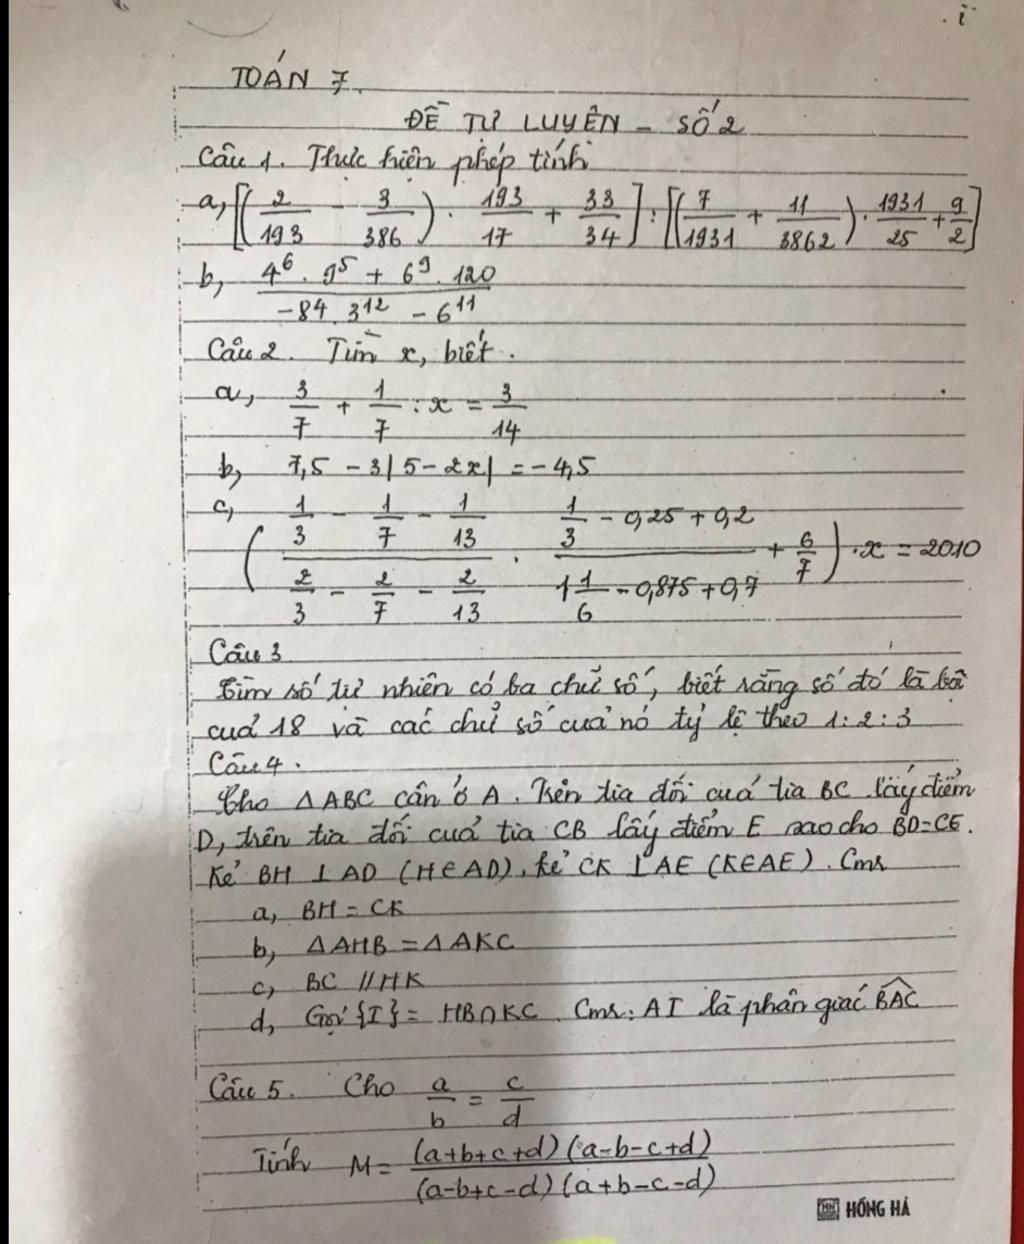 TOÁN 7.
ĐỀ TỰ LUYỆN - SỐ 2
Câu 1. Thực hiện phép tính
a, [(2/193 - 3/386) · 193/17 + 33/34] : [(7/1931 + 11/3862) · 1931/25 + 9/2]
b, (4^6 · 9^5 + 6^9 · 120) / (-84 3^12 - 6^11)
Câu 2. Tìm x, biết.
a, 3/7 + 1/7 : x = 3/14
b, 7,5 - 3|5 - 2x| = -4,5
c, ((1/3 - 1/7 - 1/13) / (2/3 - 2/7 - 2/13) · (1/3 - 0,25 + 0,2) / (1 1/6 - 0,875 + 0,7) + 6/7) · x = 2010
Câu 3
Tìm số tự nhiên có ba chữ số, biết rằng số đó là bội
của 18 và các chữ số của nó tỷ lệ theo 1:2:3
Câu 4.
Cho ΔABC cân ở A. Trên tia đối của tia BC lấy điểm
D, trên tia đối của tia CB lấy điểm E sao cho BD=CE.
Kẻ BH ⊥ AD (H∈AD), kẻ CK ⊥ AE (K∈AE). Cmr
a, BH = CK
b, ΔAHB = ΔAKC
c, BC // HK
d, Gọi {I} = HB∩KC. Cmr: AI là phân giác BAC
Câu 5. Cho a/b = c/d
Tính M = (a+b+c+d)(a-b-c+d) / (a-b+c-d)(a+b-c-d)
HỒNG HÀ